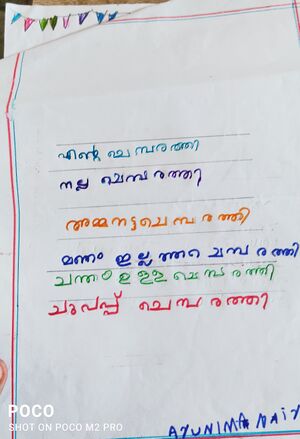 എന്റെ ചെമ്പരത്തി
നല്ല ചെമ്പരത്തി
അമ്മ നട്ട ചെമ്പരത്തി
മണം ഇല്ലാത്ത ചെമ്പരത്തി
ചന്തം ഉള്ള ചെമ്പരത്തി
ചുവപ്പ് ചെമ്പരത്തി
POCO
SHOT ON POCO M2 PRO
AYUNIMA NAIR